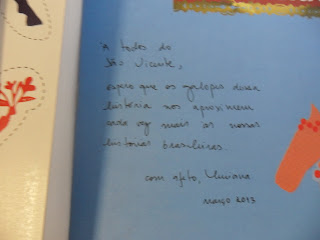 A todos do
São Vicente,
espero que os galopes dessa
história nos aproximem
cada vez mais às nossas
histórias brasileiras.
com afeto,
março 2013